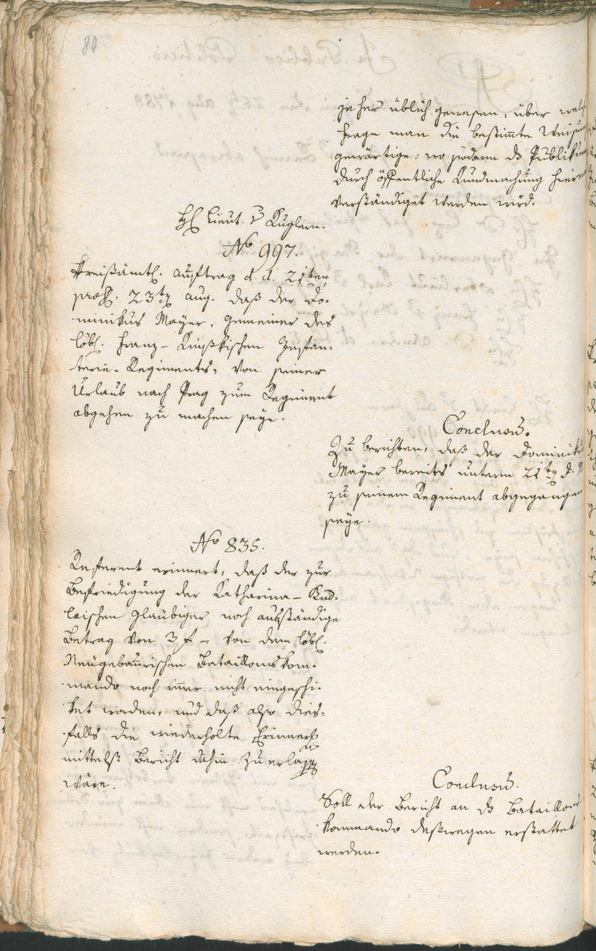 80
je her üblich gewesen, über welche
Frage man die bestimmte Weisung
gewärtige: wo sodann das Publikum
durch öffentliche Kundmachung hievon
verständiget werden wird.
H. Lieut. v. Kuglern.
No 997.
Kreißämtl. Auftrag d. d. 21ten
præs. 23ten Aug. daß der Do-
minikus Mayer, Gemeiner des
löbl. Franz-Kinskischen Infan-
terie-Regiments, von seiner
Urlaub nach Prag zum Regiment
abgehen zu machen seye.
Conclusum.
Zu berichten, daß der Dominikus
Mayer bereits unterm 21ten d. M.
zu seinem Regiment abgegangen
seye.
No 835.
Referent erinnert, daß der zur
Befriedigung der Katharina-
leischen Glaubiger noch ausständige
Betrag von 3 f - von dem löbl.
Neugebäurischen Bataillonskom-
mando noch immer nicht eingeschi-
ket worden, und daß also dies-
falls die wiederholte Erinnerung
mittelst Bericht dahin zu erlassen
wäre.
Conclusum.
Soll der Bericht an das Bataillons
Kommando deßwegen erstattet
werden.